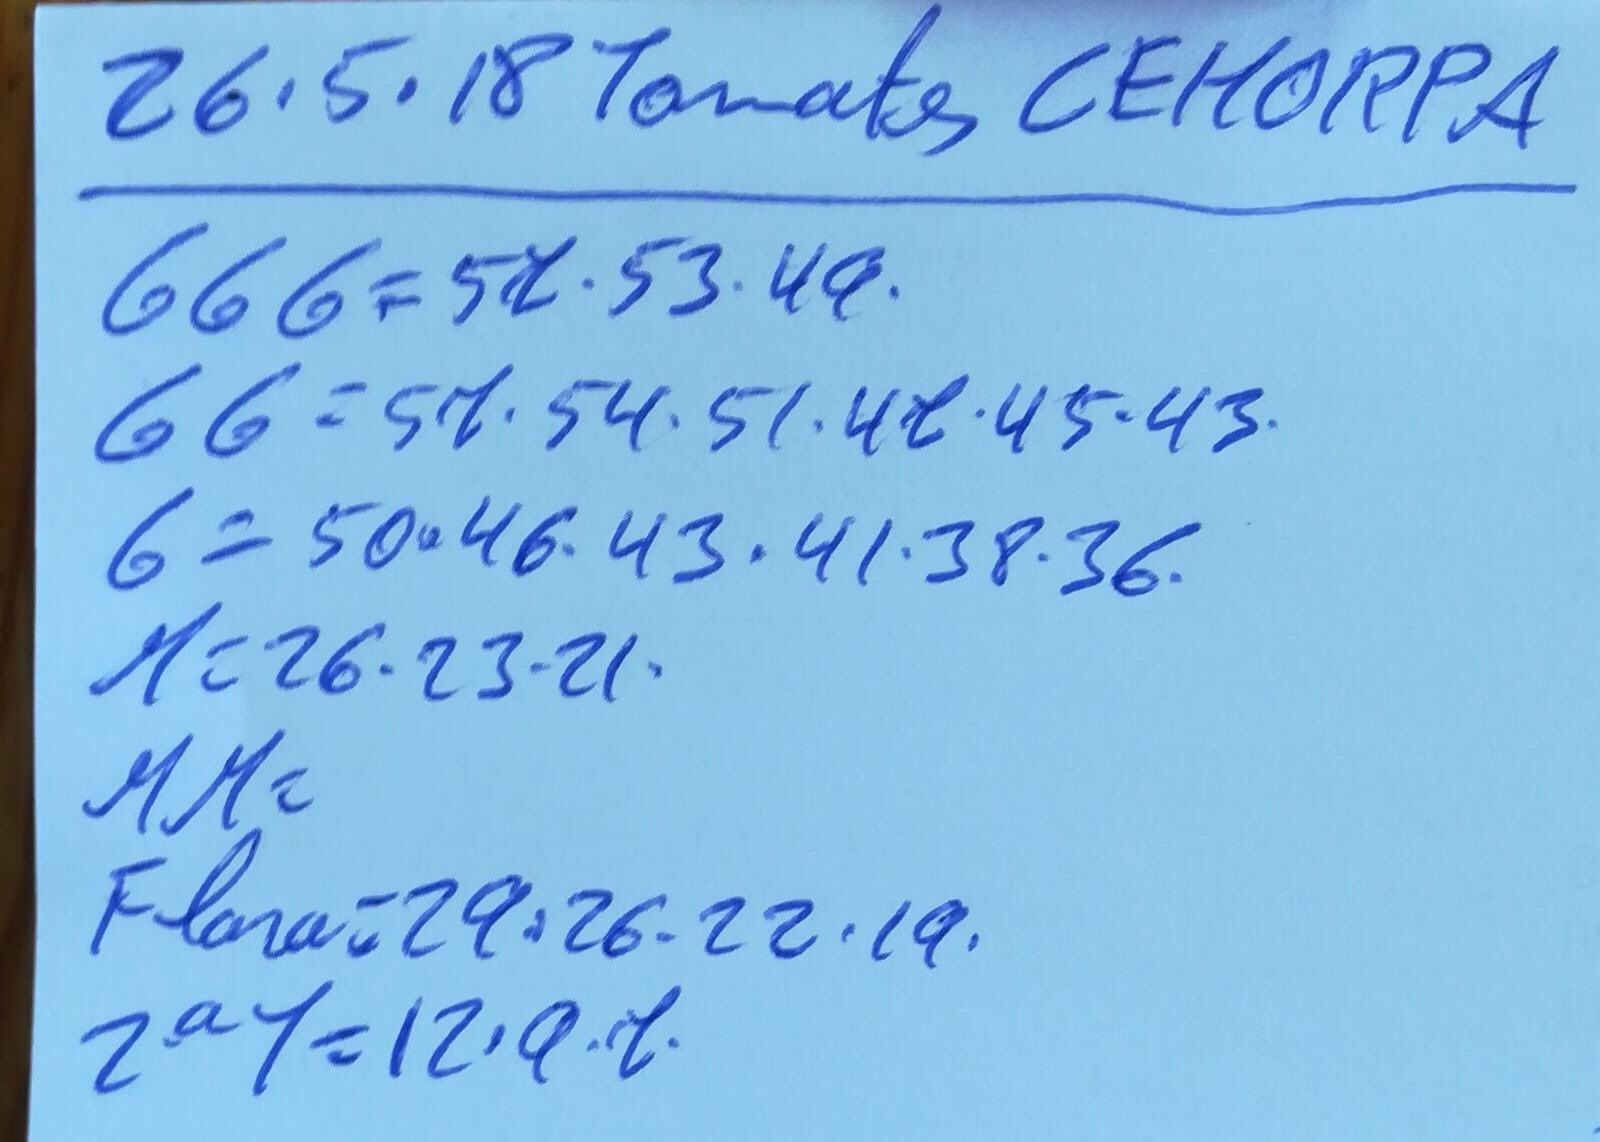 26.5.18 Tomates CEHORPA
GGG=57.53.49.
GG=57.54.51.47.45.43.
G=50.46.43.41.38.36.
M=26.23.21.
MM=
Flora=29.26.22.19.
2ªY=12.9.7.